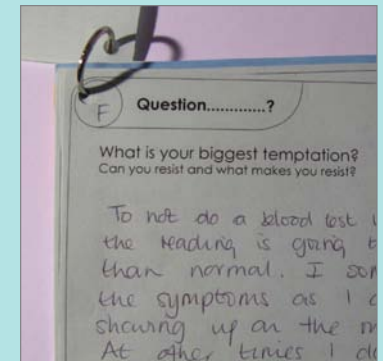 F
Question.............?
What is your biggest temptation?
Can you resist and what makes you resist?
To not do a blood test
the reading is going
than normal. I
the symptoms as I
showing up on the
At other times I